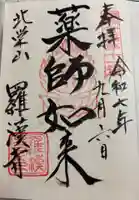 奉拝
令和七年
九月六日
薬師如来
北栄山
羅漢寺